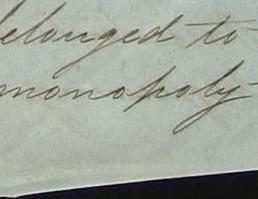 elonged to
monopoly-